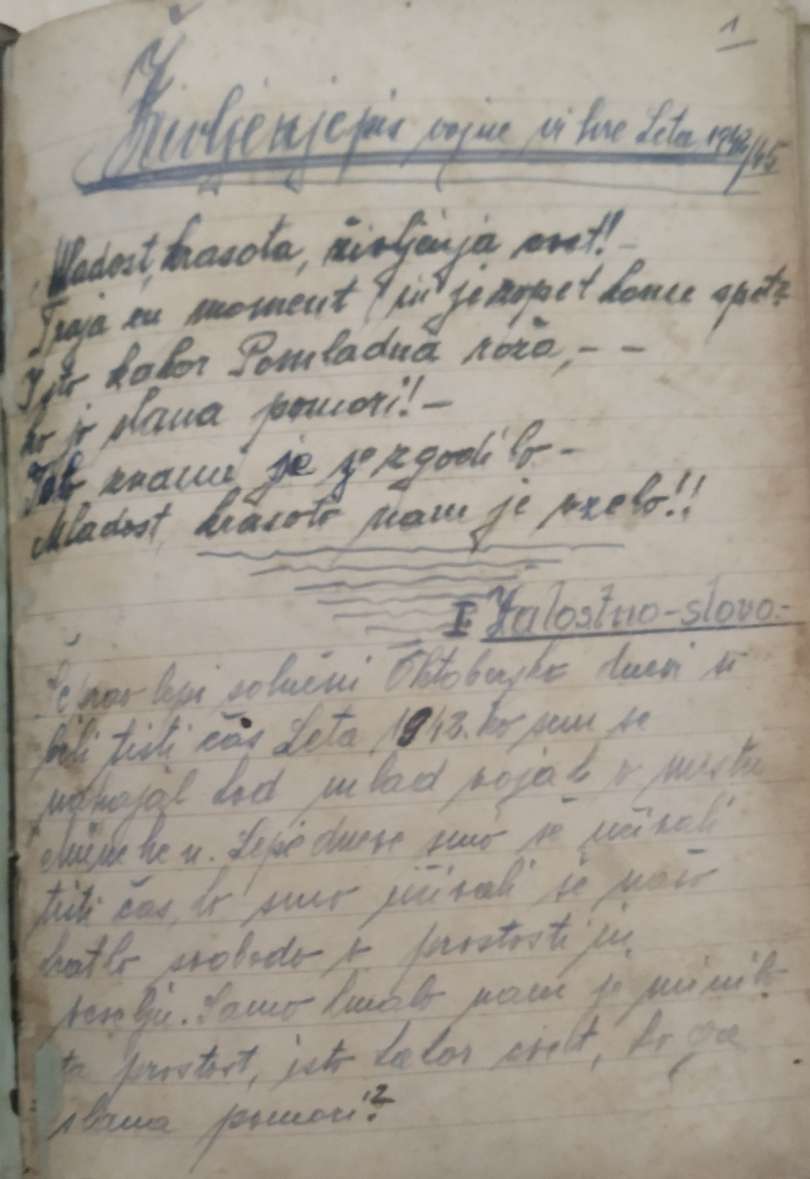 1
Življenjepis vojne vihre Leta 1942/45
Mladost, krasota, življenja cvet! -
Traja en moment in je zopet konec spet?
Isto kakor Pomladna roža, - -
ko jo slana pomori! -
Tako z nami je se zgodilo -
Mladost, krasoto nam je vzelo!!
I Žalostno-slovo.-
Še prav lepi solnčni Oktobersko dnevi so
bili tisti čas Leta 1942. ko sem se
nahajal kod mlad vojak v mestu
München. Lepe dneve smo še uživali
tisti čas, ko smo uživali še našo
kratko svobodo v prostosti in
veselju. Samo kmalo nam je minila
ta prostost, isto kakor cvet, ko ga
slana pomori?